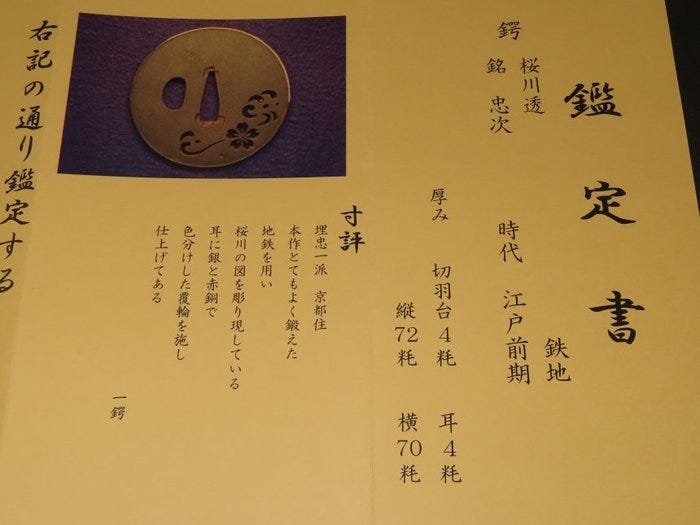 鑑定書
鍔 桜川透
銘 忠次
鉄地
時代 江戸前期
厚み 切羽台4粍 耳4粍
縦72粍 横70粍
寸評
埋忠一派 京都住
本作とてもよく鍛えた
地鉄を用い
桜川の図を彫り現している
耳に銀と赤銅で
色分けした覆輪を施し
仕上げてある
一鍔
右記の通り鑑定する